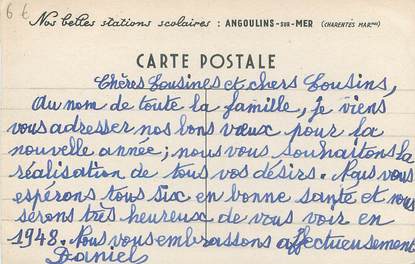 66
Nos belles stations scolaires : ANGOULINS-SUR-MER (CHARENTES MARmes)
CARTE POSTALE
Chères Cousines et chers Cousins,
Au nom de toute la famille, je viens
vous adresser nos bons vœux pour la
nouvelle année; nous vous souhaitons la
réalisation de tous vos désirs. Nous vous
espérons tous six en bonne santé et nous
serons très heureux de vous voir en
1948. Nous vous embrassons affectueusement
Daniel